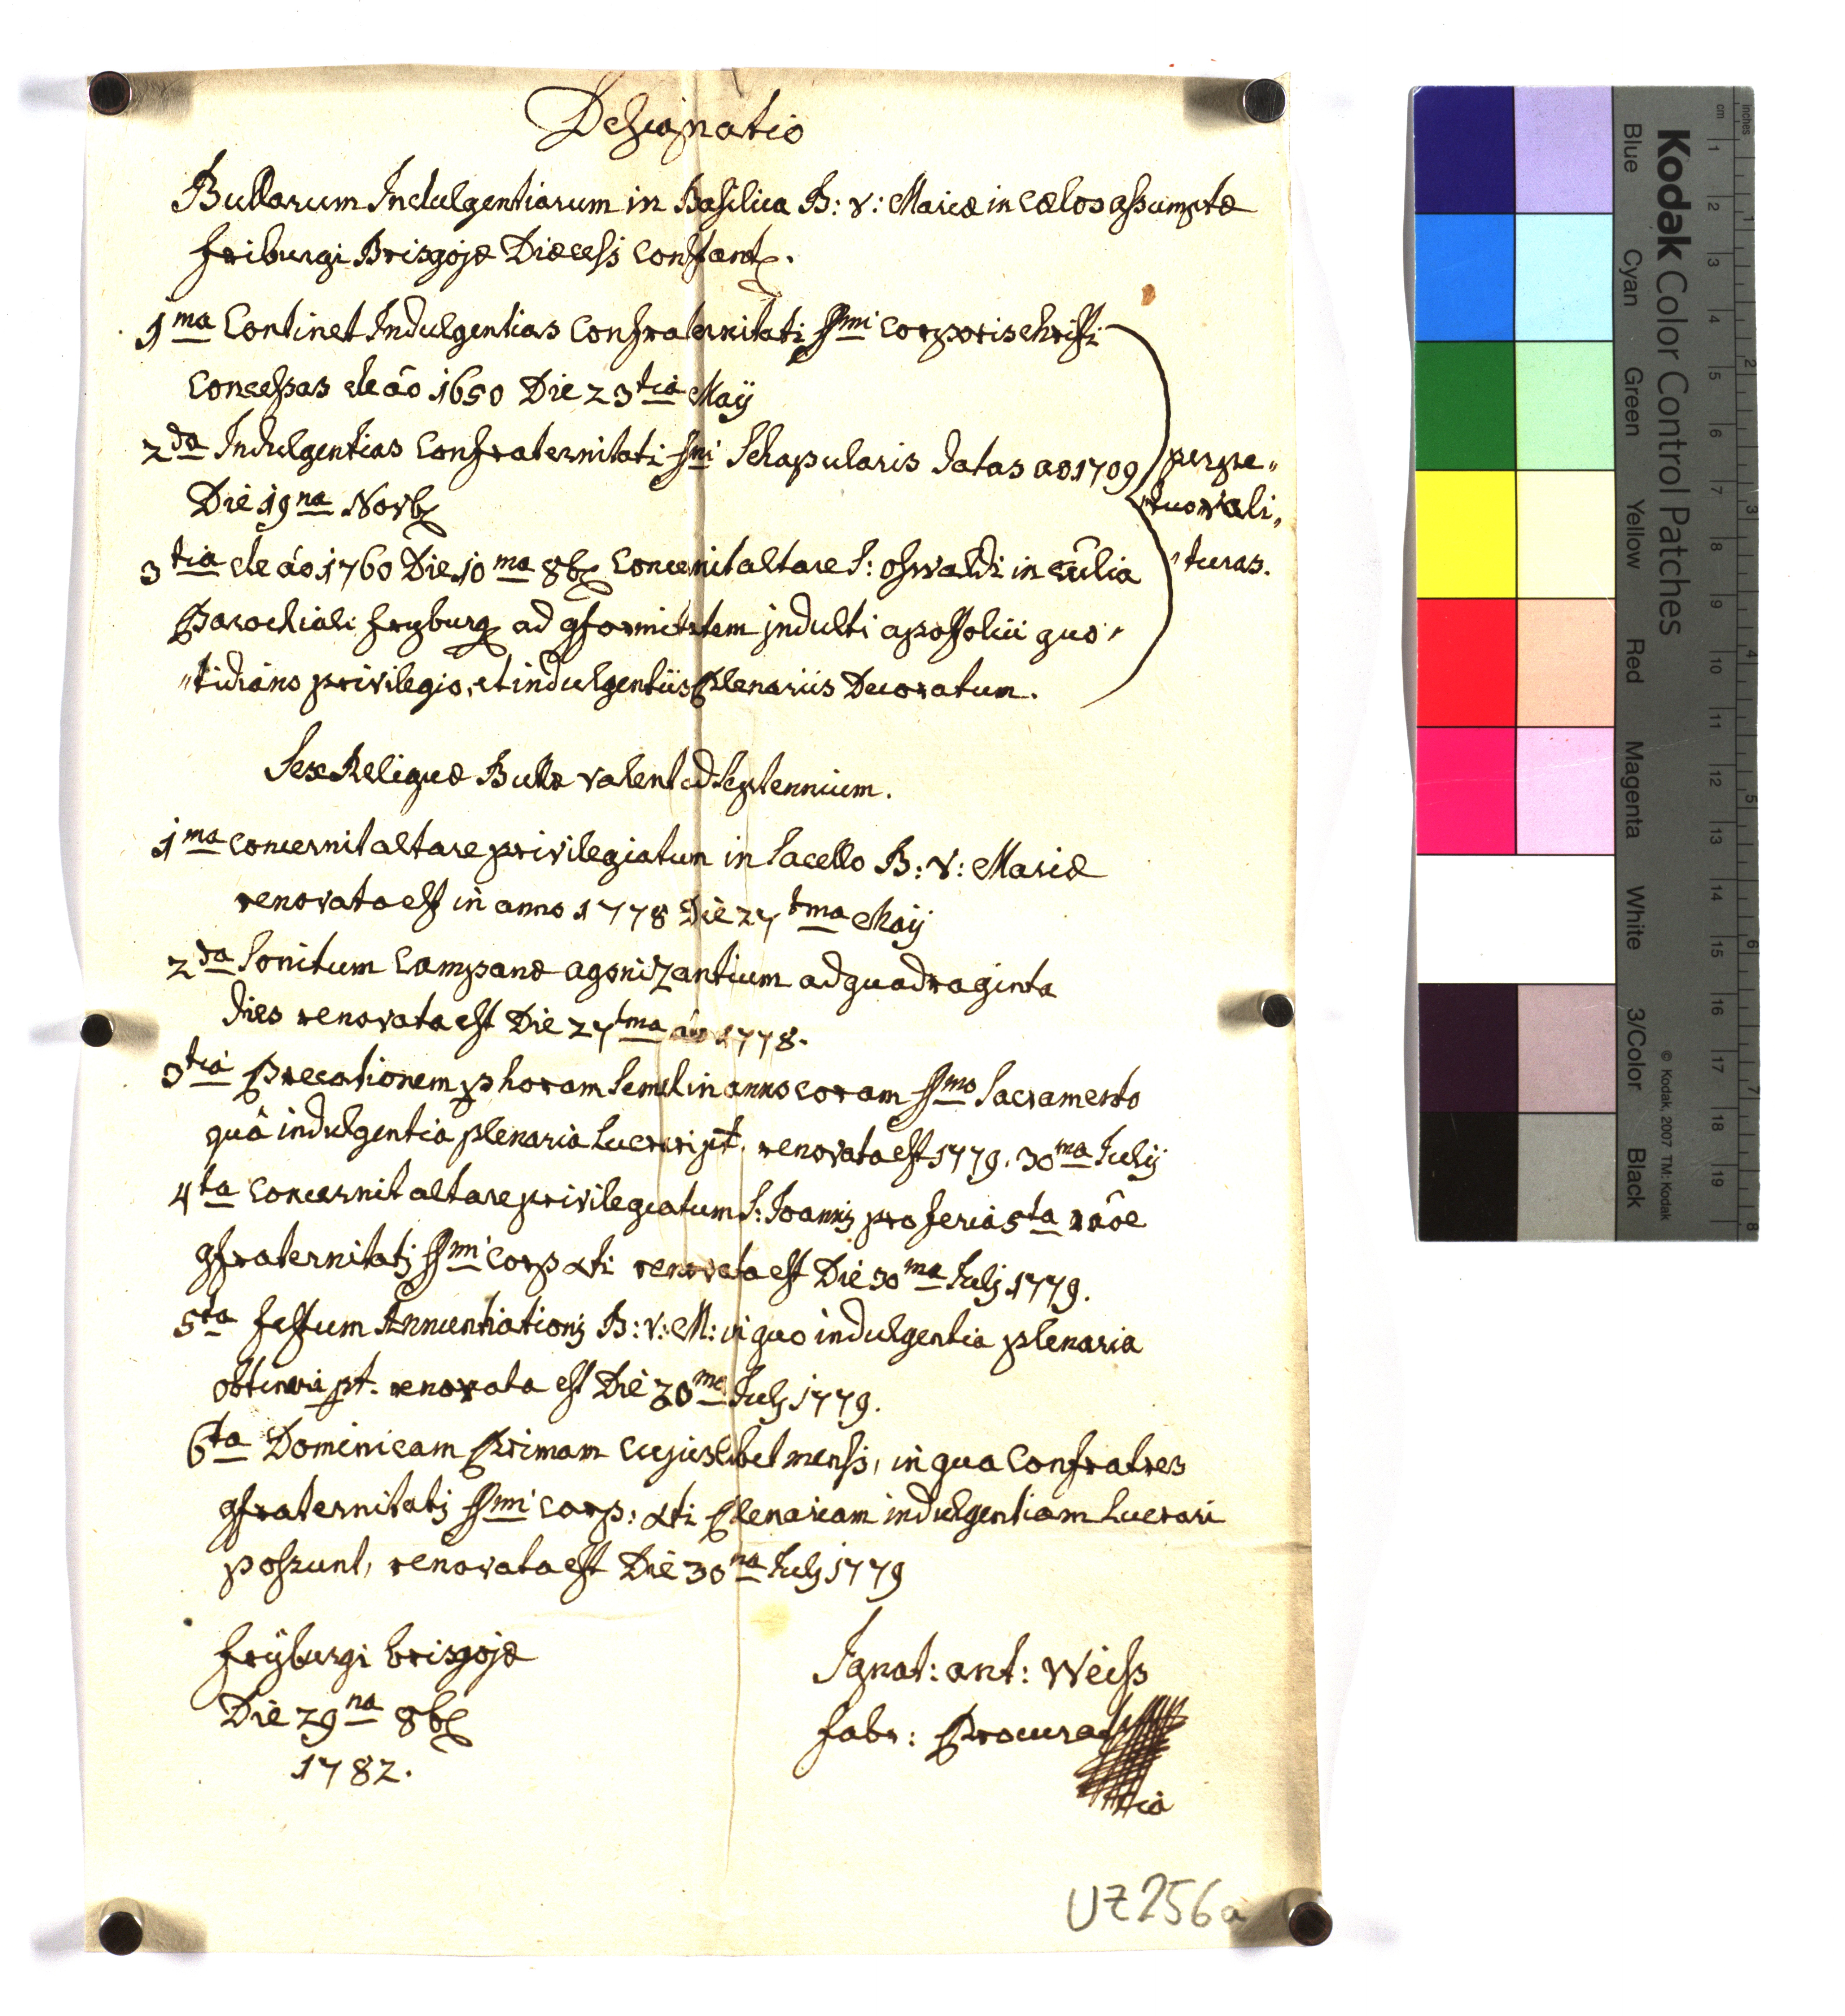 Designatio
Bullarum Indulgentiarum in Basilica B: V: Mariæ in cælos assumptæ
friburgi Brisgojæ Diæcesis Constant.
1ma Continet Indulgentias Confraternitati SSmi Corporis christi
Concessas de ão 1650 Die 23tia Maij
2da Indulgentias Confraternitati SSmi Schapularis datas ao 1709
Die 19na Novb
3tia de ão 1760 Die 10ma 8b Concernit altare S: Oswaldi in Ecclia
Parochiali fryburg ad gformitatem indulti apostolici quo"
"tidiano privilegio, et indulgentiis Plenariis Decoratum.
perpe"
"tuo vali"
"turas.
Sex Reliquæ Bullæ valent ad septennium.
1ma concernit altare privilegiatum in Sacello B: V: Mariæ
renovata est in anno 1778 Die 27tma Maij
2da Sonitum Campanæ agonizantium ad quadraginta
dies renovata est Die 27tma ão 1778.
3tia Precationem p horam semel in anno coram SSmo Sacramento
quâ indulgentia plenaria lucrari pt. renovata est 1779. 30ma Julij
4ta Concernit altare privilegiatum S: Joannis pro feria 5ta rãoe
gfraternitatis SSmi Corp Xti renovata est Die 30ma Julij 1779.
5ta festum Annuntiationis B: V: M: in quo indulgentia plenaria
obtineri pt. renovata est Die 30ma Julij 1779.
6ta Dominicam Primam cujuslibet mensis, in qua Confratres
gfraternitatis SSmi Corp: Xti Plenariam indulgentiam lucrari
possunt, renovata est Die 30ma Julij 1779
frÿburgi brisgojæ
Die 29na 8b
1782.
Ignat: ant: Weiss
fabr: Procurat
UZ 256a
Kodak Color Control Patches
© Kodak, 2007 TM: Kodak
Blue Cyan Green Yellow Red Magenta White 3/Color Black
inches 1 2 3 4 5 6 7 8
cm 1 2 3 4 5 6 7 8 9 10 11 12 13 14 15 16 17 18 19